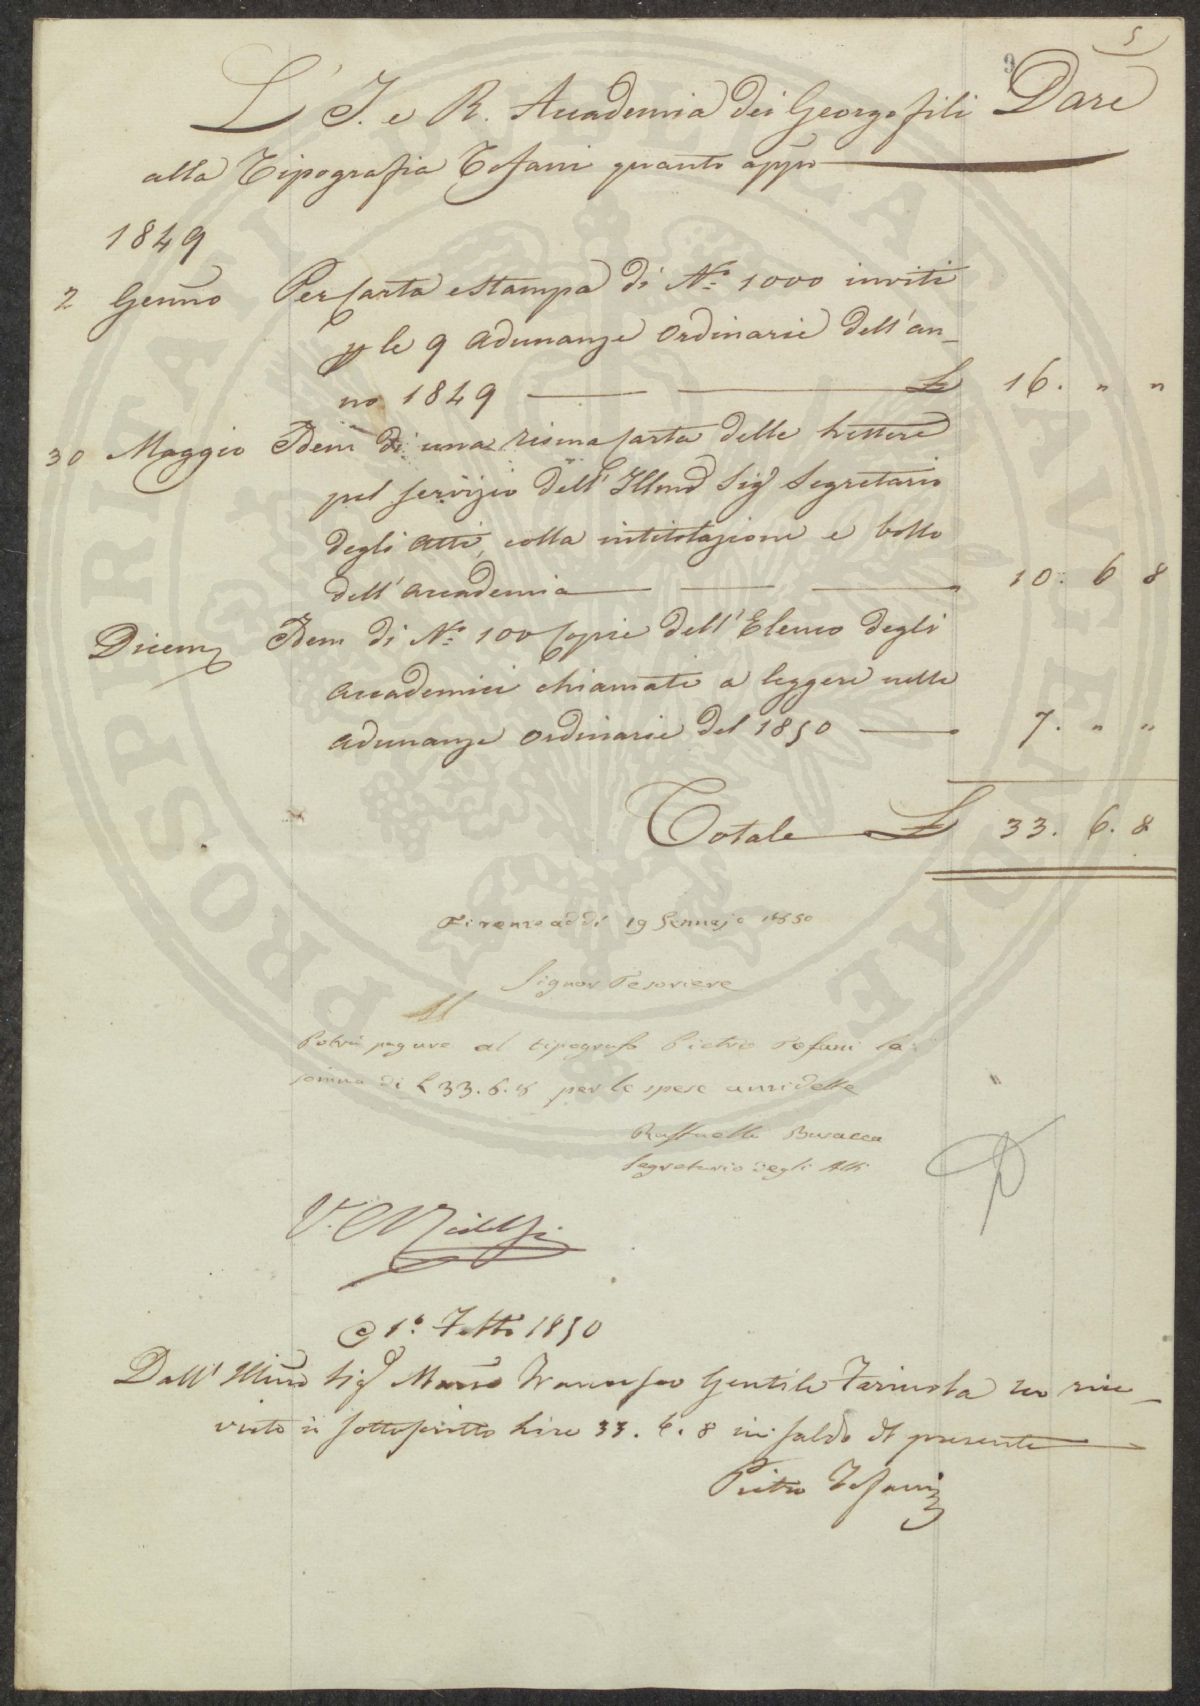 5
9
L' I. e R. Accademia dei Georgofili Dare
alla Tipografia Tofani quanto appo
1849
2 Genno Per carta e stampa di No. 1000 inviti
p le 9 adunanze ordinarie dell'an-
no 1849 £ 16. " "
30 Maggio Idem di una risma carta delle Lettere
pel servizio dell' Illmo Sigr Segretario
degli atti, colla intitolazione e bollo
dell' accademia 10. 6 8
Dicem Idem di No. 100 Copie dell' Elenco degli
accademici chiamati a leggere nelle
adunanze ordinarie del 1850 7. " "
Totale £ 33. 6. 8
Firenze addì 19 Gennajo 1850
Signor Tesoriere
Potrà pagare al tipografo Pietro Tofani la
somma di L 33. 6. 8 per le spese anzidette
Raffaello Busacca
Segretario degli Atti
V.
1o. Febb 1850
Dall' Illmo Sigr Francesco Gentile Farinola ho rice-
vuto io sottoscritto Lire 33. 6. 8 in saldo del presente
Pietro Tofani
PROSPERITATI PUBLICAE AUGENDAE